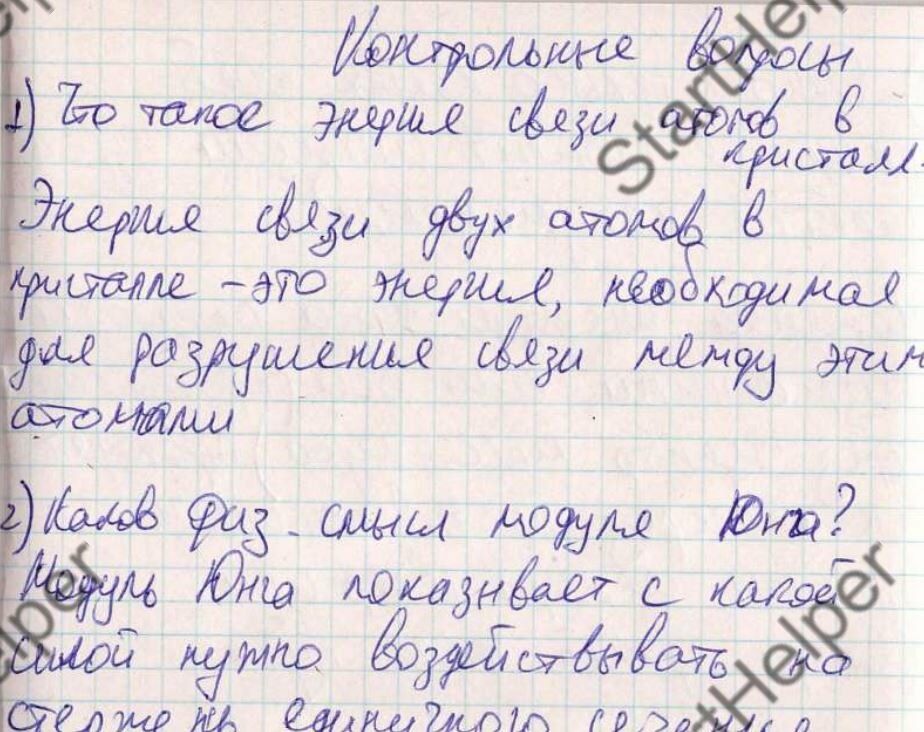 Контрольные вопросы
1) Что такое энергия связи атомов в
кристалл.
Энергия связи двух атомов в
кристалле - это энергия, необходимая
для разрушения связи между этим
атомами
2) Каков физ. смысл модуля Юнга?
Модуль Юнга показывает с какой
силой нужно воздействывать на
стержень единичного сечения
StartHelper
StartHelper
StartHelper